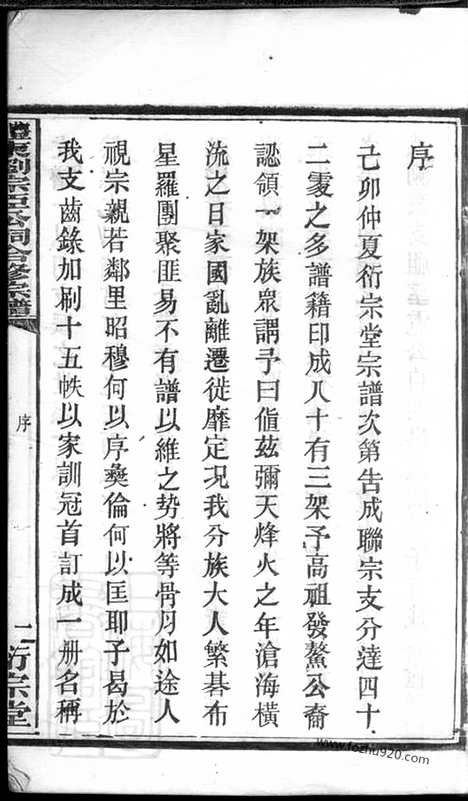 序
己卯仲夏衍宗堂宗譜次第吿成聯宗支分達四十
二㕠之多譜籍印成八十有三架予高祖發鰲公裔
認領一架族眾謂予曰值茲彌天烽火之年滄海橫
流之日家國亂離遷徙靡定况我分族大人繁碁布
星羅團聚匪易不有譜以維之势將等骨肉如途人
視宗親若鄰里昭穆何以序彝倫何以匡耶子曷於
我支齒錄加刷十五帙以家訓冠首訂成一册名稱
醴東劉宗臣公祠合修宗譜
序
二
衍宗堂
www.fozhu920.com